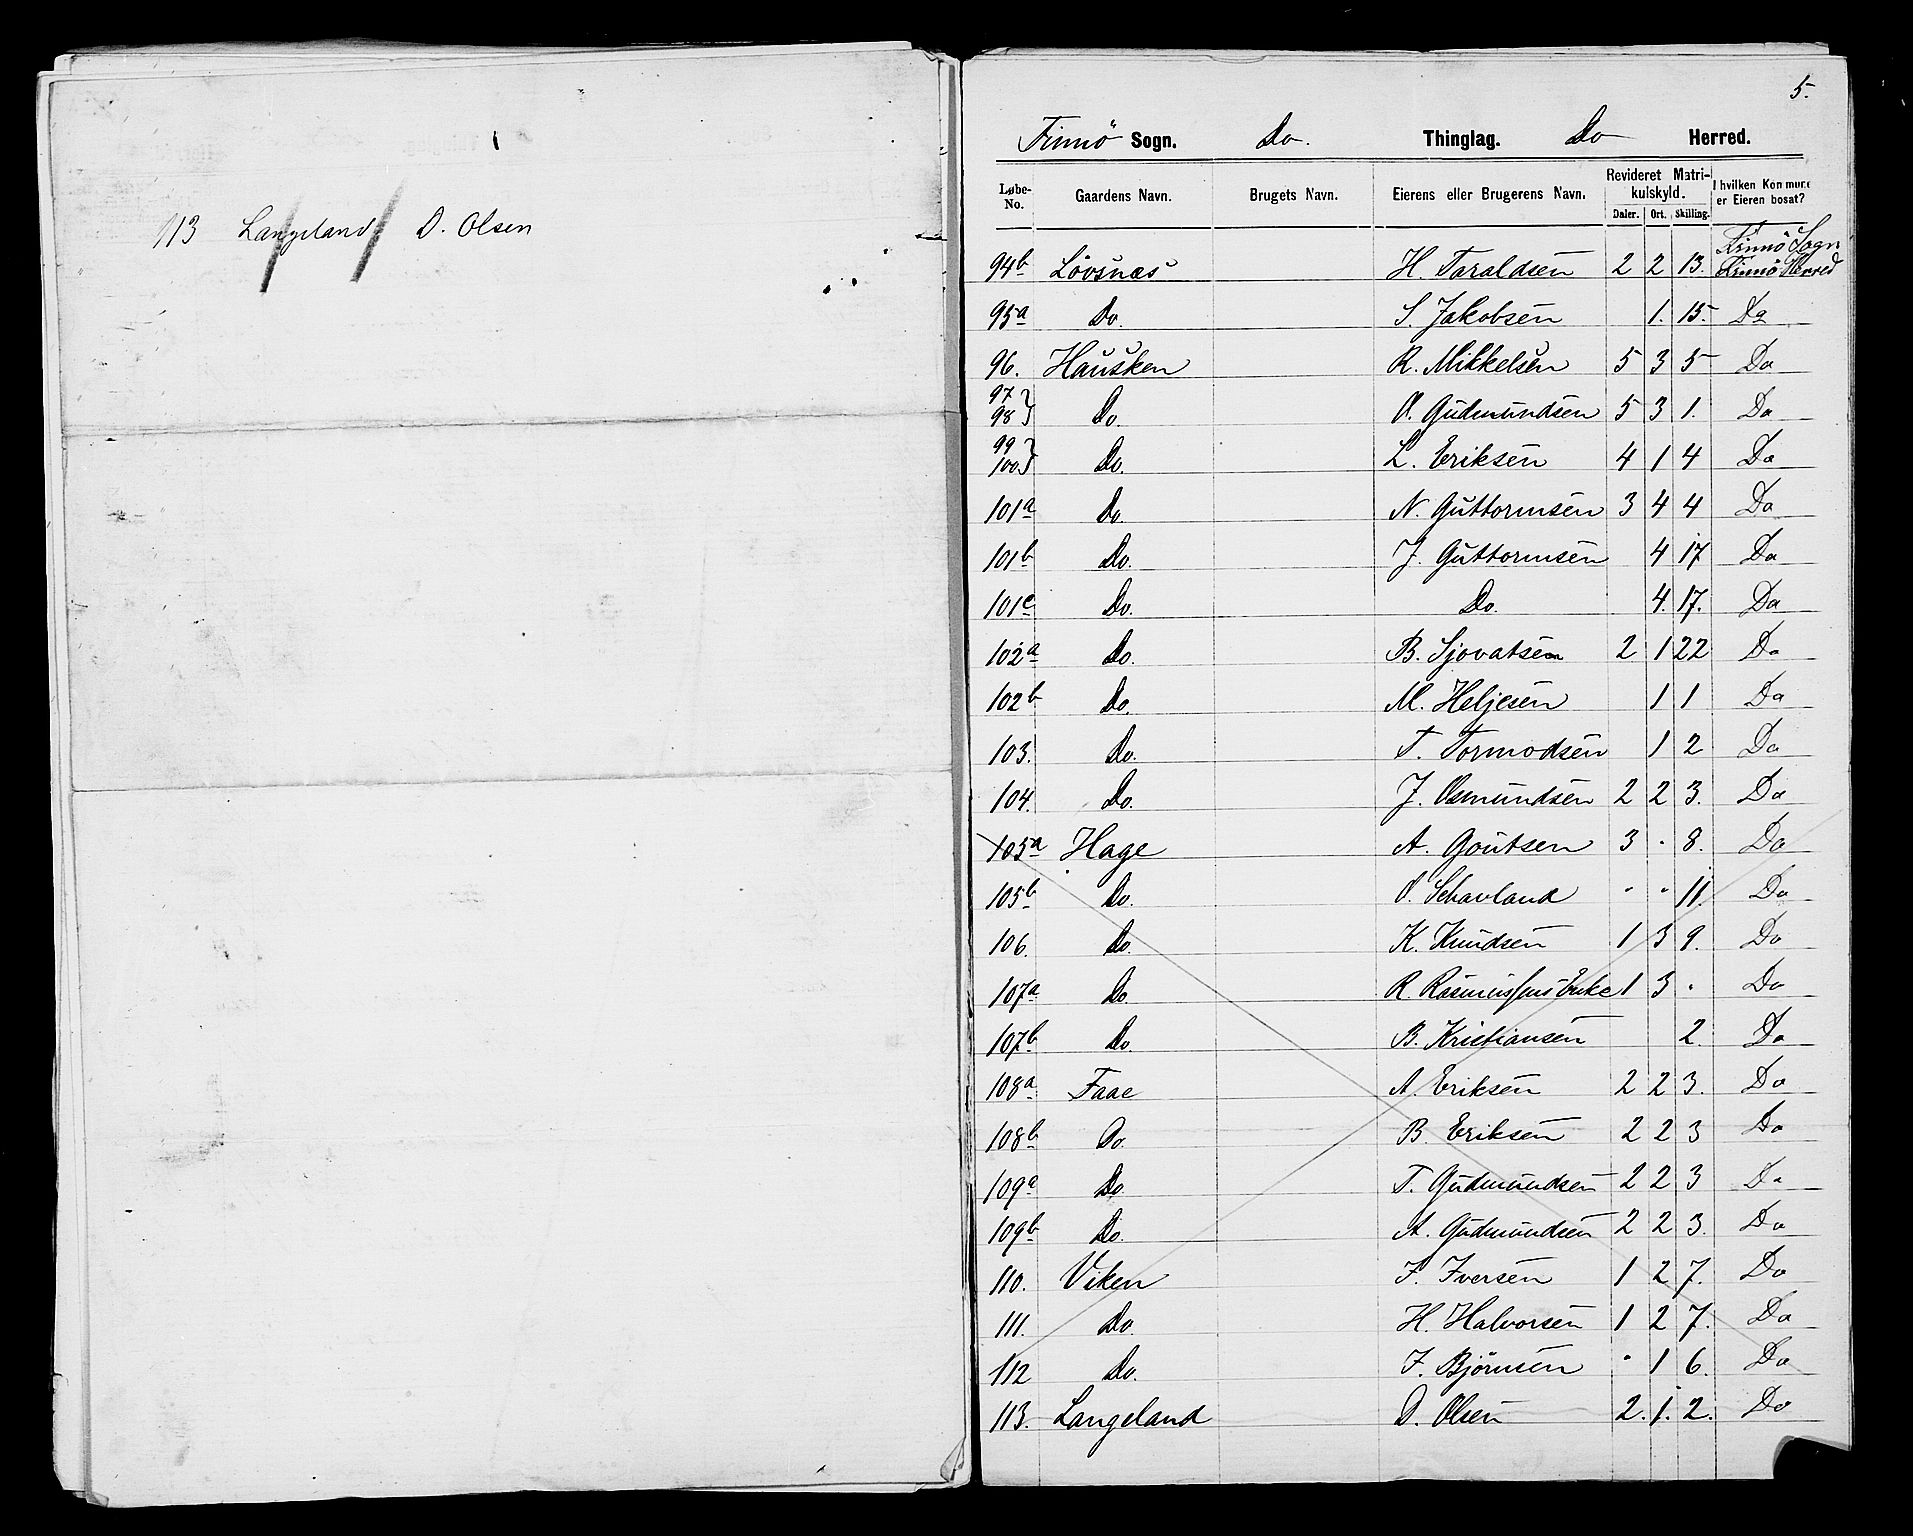 113 Langeland D. Olsen
5.
Finnö Sogn. Do. Thinglag. Do Herred.
Løbe-No. Gaardens Navn. Brugets Navn. Eierens eller Brugerens Navn. Revideret Matrikulskyld. Daler. Ort. Skilling. I hvilken Kommune er Eieren bosat?
Finnö Sogn
94b Lövsnæs H. Taraldsen 2 2 13. Finnö Herred
95a Do. S. Jakobsen 1. 15. Do
96. Hausken R. Mikkelsen 5 3 5 Do
97 98} Do. O. Gudmundsen 5 3 1. Do
99 100} Do. L. Eriksen 4 1 4 Do
101a Do. N. Guttormsen 3 4 4 Do
101b Do. J. Guttormsen 4 17 Do
101c Do. Do. 4. 17. Do
102a Do. B. Sjovatsen 2 1 22 Do
102b Do. M. Heljesen 1 1 Do
103. Do. T. Tormodsen 1 2 Do
104. Do. J. Osmundsen 2 2 3. Do
105a Hage A. Goutsen 3 " 8. Do
105b Do. O. Schavland " " 11. Do
106. Do. K. Knudsen 1 3 9. Do
107a Do. R. Rasmussens Enke 1 3 " Do
107b Do. B. Kristiansen 2. Do
108a Faae A. Eriksen 2 2 3. Do
108b Do. B. Eriksen 2 2 3 Do
109a Do T. Gudmundsen 2 2 3 Do
109b Do. A. Gudmundsen 2 2 3. Do
110. Viken I. Iversen 1 2 7. Do
111. Do. H. Halvorsen 1 2 7. Do
112 Do. I. Björnsen " 1 6. Do
113. Langeland D. Olsen 2. 1. 2. Do